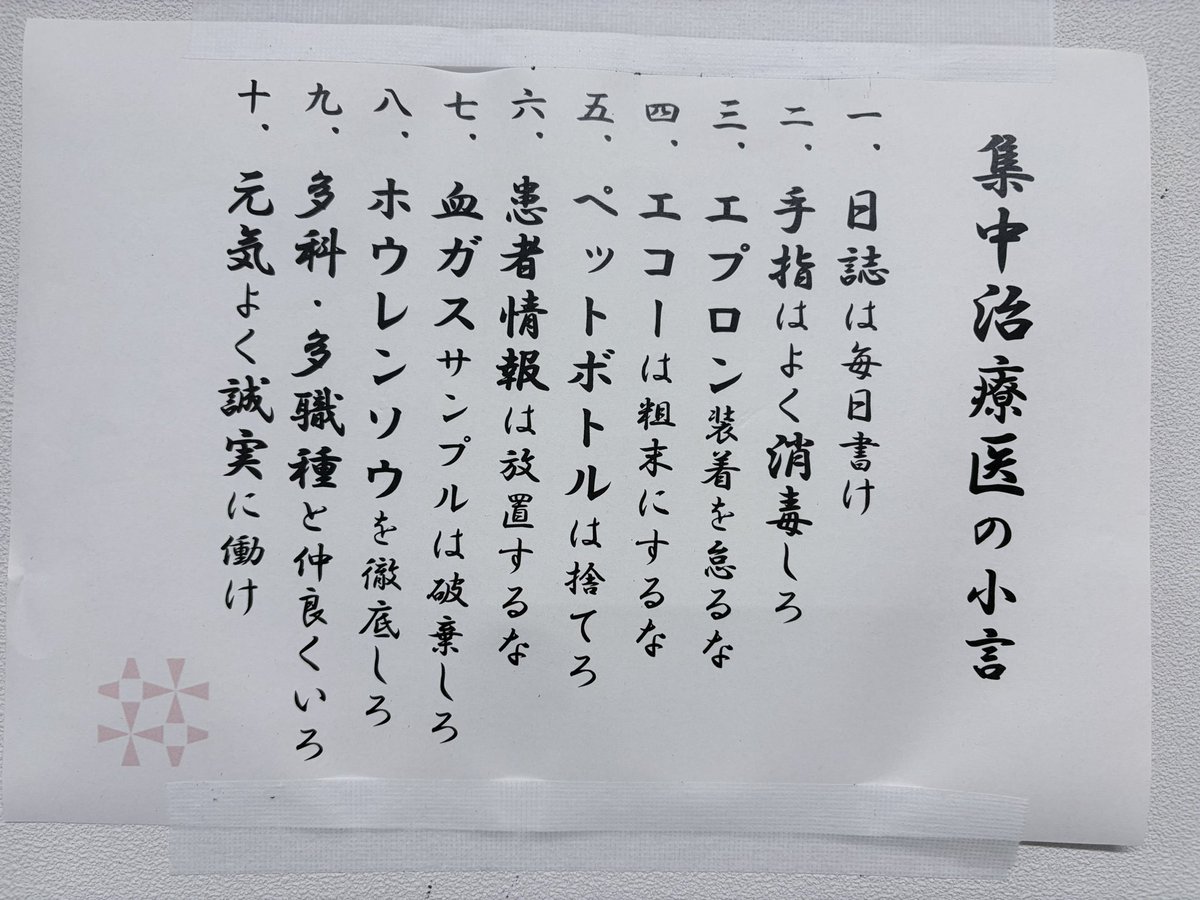 集中治療医の小言
一、日誌は毎日書け
二、手指はよく消毒しろ
三、エプロン装着を怠るな
四、エコーは粗末にするな
五、ペットボトルは捨てろ
六、患者情報は放置するな
七、血ガスサンプルは破棄しろ
八、ホウレンソウを徹底しろ
九、多科・多職種と仲良くいろ
十、元気よく誠実に働け